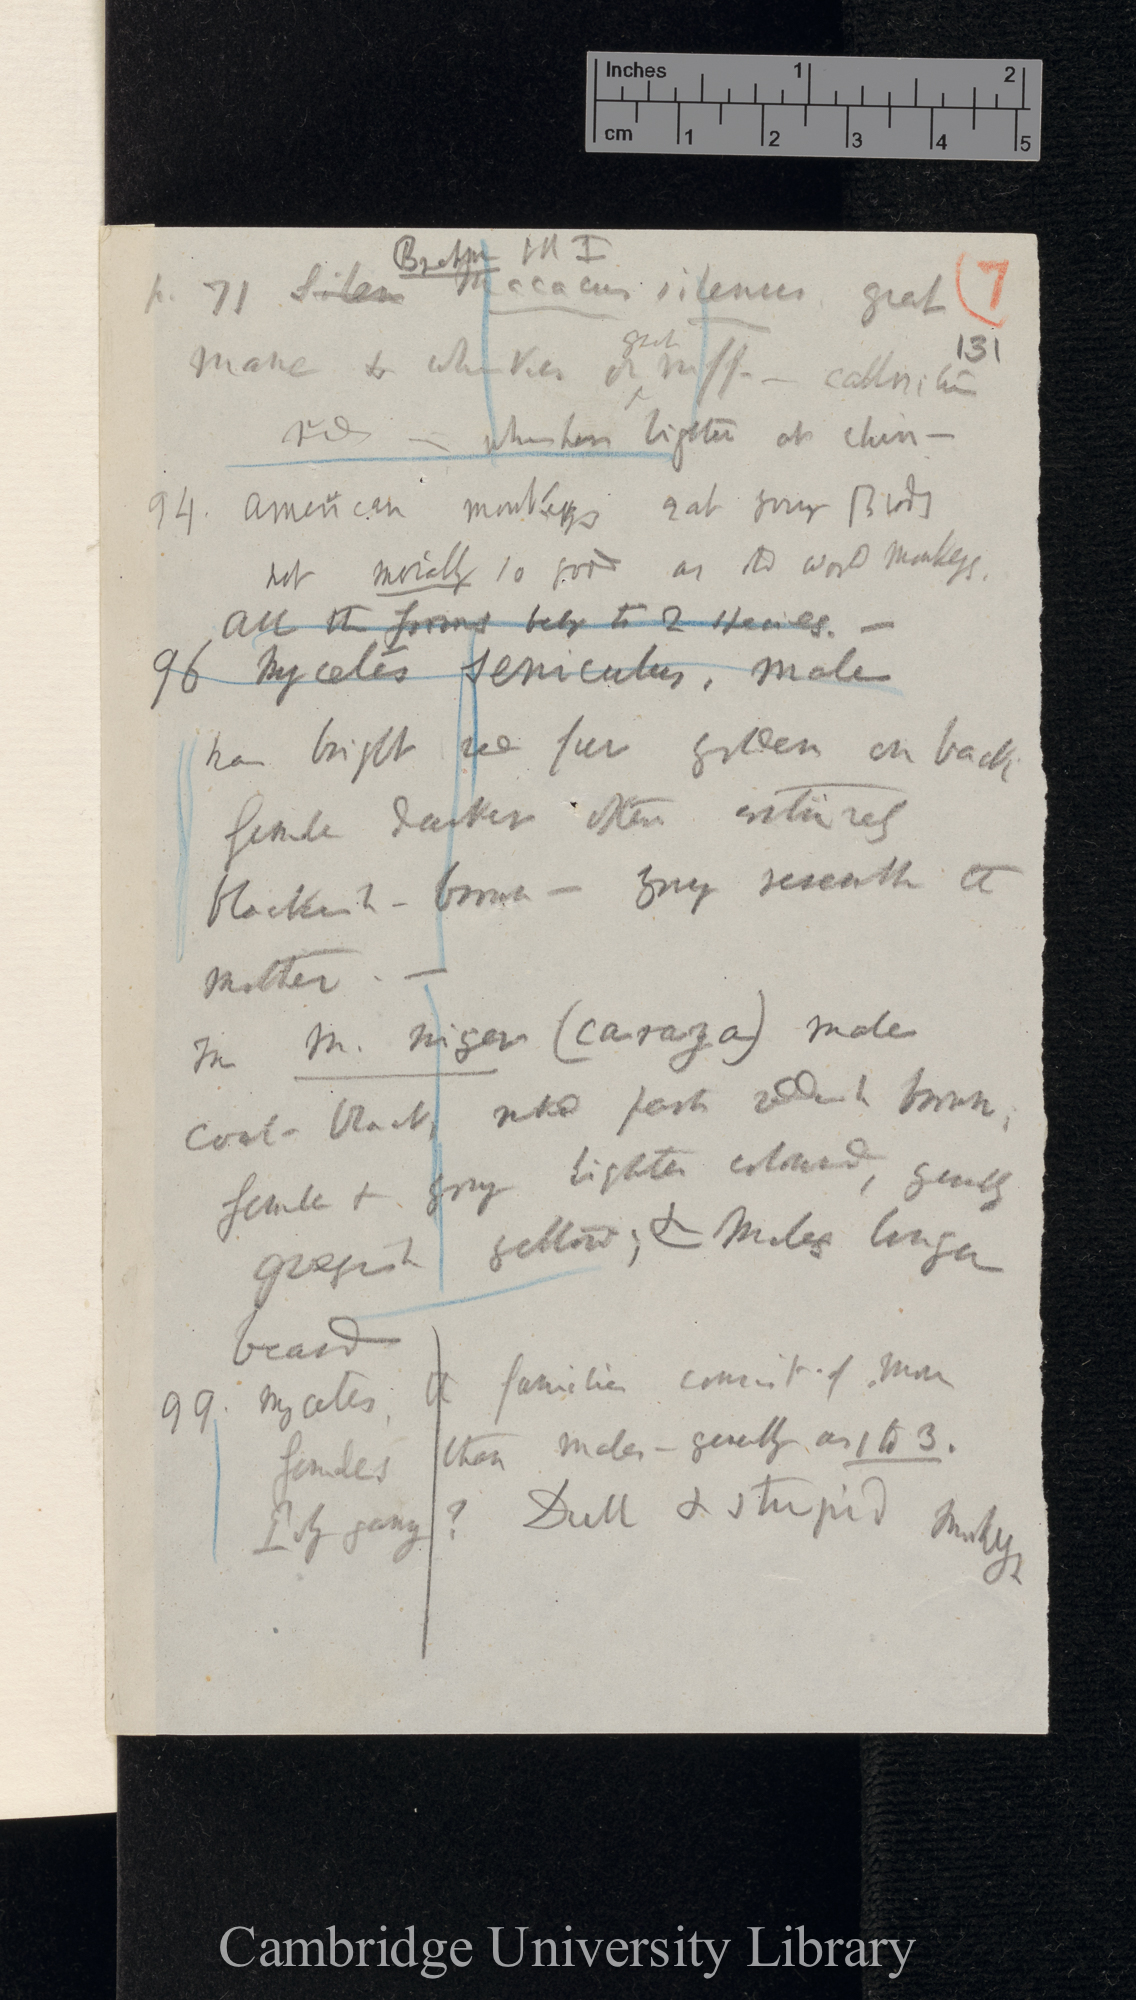 Inches 1 2
cm 1 2 3 4 5
Brehm
7
p. 71 Silen Macacus silenus great
131
mane & whisker or great ruff — callosities
red — whiskers lighter at chin —
94. American monkeys eat young Birds
not morally so good as old world monkeys.
All the forms belong to 2 species. —
96 Mycetes seniculus, male
has bright red fur golden on back
female darker often entirely
blackish-brown — young resemble the
mother. —
In M. niger (caraya) male
coal-black, naked parts reddish brown,
female & young lighter coloured, generally
greyish yellow; & males longer
beard
99. Mycetes, the families consist of more
females than males — generally as 1 to 3.
? Dull & stupid
Cambridge University Library